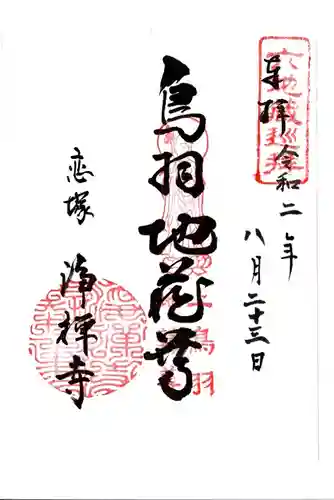 六地蔵巡拝
奉拝 令和二年
八月二十三日
鳥羽地蔵尊
恋塚 浄禅寺